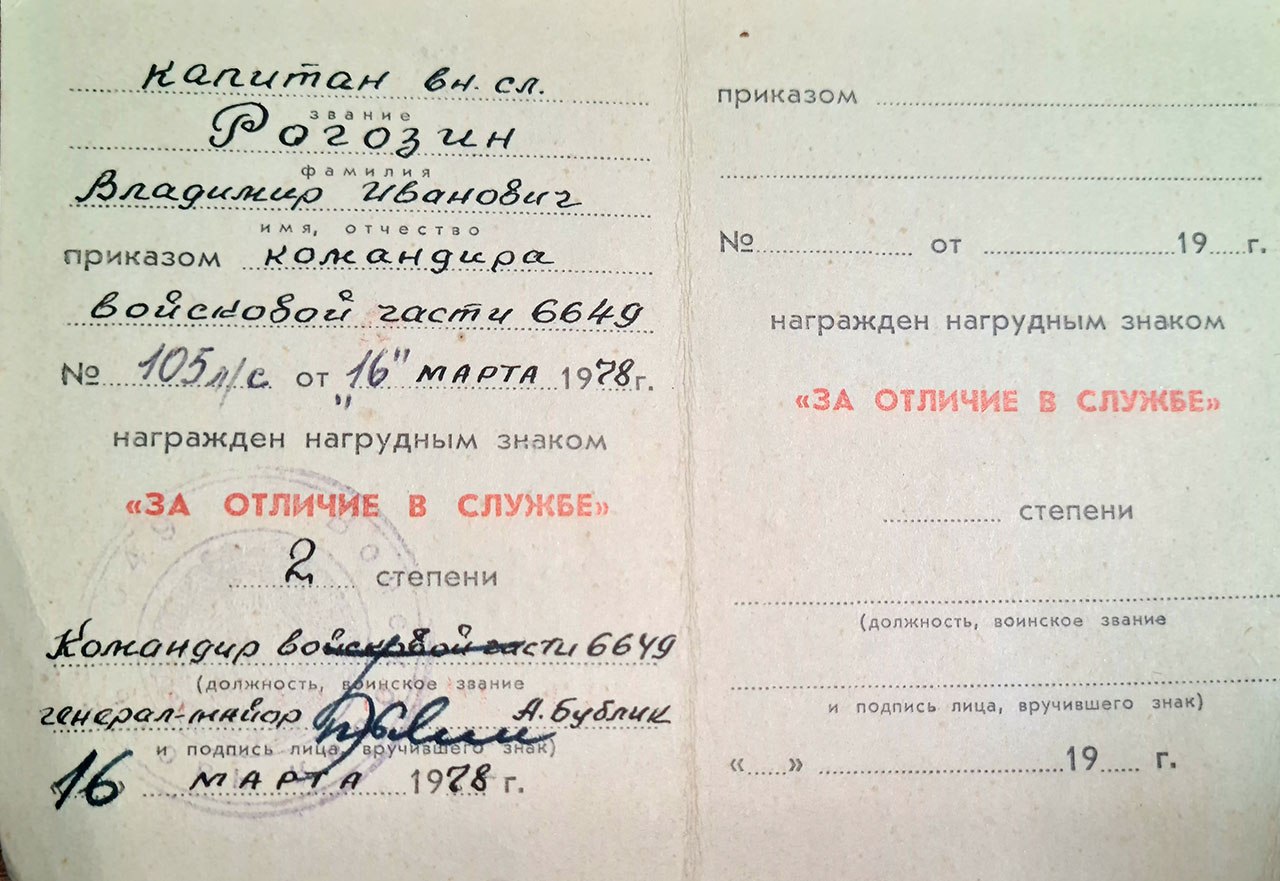 капитан вн. сл.
звание
Рогозин
фамилия
Владимир Иванович
имя, отчество
приказом командира
войсковой части 6649
№ 105 л/с от "16" МАРТА 1978 г.
награжден нагрудным знаком
«ЗА ОТЛИЧИЕ В СЛУЖБЕ»
2 степени
Командир войсковой части 6649
(должность, воинское звание
генерал-майор А. Бублик
и подпись лица, вручившего знак)
«16» МАРТА 1978 г.
приказом
№ от 19 г.
награжден нагрудным знаком
«ЗА ОТЛИЧИЕ В СЛУЖБЕ»
степени
(должность, воинское звание
и подпись лица, вручившего знак)
« » 19 г.